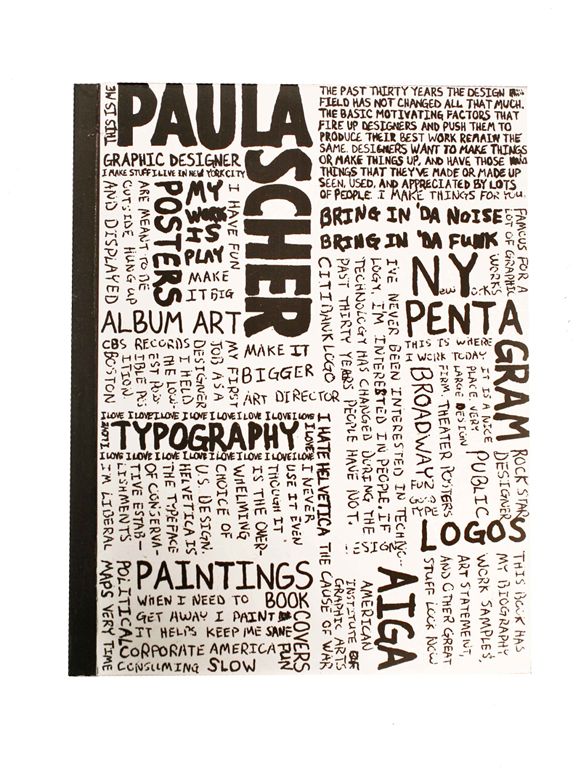 THIS IS ME
PAULA
SCHER
GRAPHIC DESIGNER
I MAKE STUFF I LIVE IN NEW YORK CITY
THE PAST THIRTY YEARS THE DESIGN
FIELD HAS NOT CHANGED ALL THAT MUCH.
THE BASIC MOTIVATING FACTORS THAT
FIRE UP DESIGNERS AND PUSH THEM TO
PRODUCE THEIR BEST WORK REMAIN THE
SAME. DESIGNERS WANT TO MAKE THINGS
OR MAKE THINGS UP, AND HAVE THOSE
THINGS THAT THEY'VE MADE OR MADE UP
SEEN, USED, AND APPRECIATED BY LOTS
OF PEOPLE. I MAKE THINGS FOR YOU.
POSTERS
ARE MEANT TO BE
OUTSIDE HUNG UP
AND DISPLAYED
MY
WORK
IS
PLAY
I HAVE FUN
MAKE
IT BIG
BRING IN 'DA NOISE
BRING IN 'DA FUNK
FAMOUS FOR A
LOT OF GRAPHIC
WORKS
NY
New York's
ALBUM ART
CBS RECORDS
BOSTON
MY FIRST
JOB AS A
DESIGNER
I HELD
THE LOW
EST POS
IBLE POS
ITION
MAKE IT
BIGGER
ART DIRECTOR
CITIBANK LOGO
I'VE NEVER BEEN INTERESTED IN TECHNO-
LOGY. I'M INTERESTED IN PEOPLE. IF
TECHNOLOGY HAS CHANGED DURING THE
PAST THIRTY YEARS PEOPLE HAVE NOT.
DESIGN
PENTA
GRAM
THIS IS WHERE
I WORK TODAY
IT IS A NICE
PLACE. VERY
LARGE DESIGN
FIRM. THEATER POSTERS
BROADWAY
FUN
GOOD
TYPE
PUBLIC
ROCK STAR
DESIGNER
I LOVE I LOVE I LOVE I LOVE I LOVE I LOVE I LOVE
I LOVE
TYPOGRAPHY
I LOVE
I LOVE I LOVE I LOVE I LOVE I LOVE I LOVE I LOVE
I HATE HELVETICA THE CAUSE OF WAR
I NEVER
USE IT EVEN
THOUGH IT
IS THE OVER-
WHELMING
CHOICE OF
U.S. DESIGN.
HELVETICA IS
THE TYPEFACE
OF CONSERVA-
TIVE ESTAB-
LISHMENTS
I'M LIBERAL
LOGOS
THIS BOOK HAS
MY BIOGRAPHY
WORK SAMPLES,
ART STATEMENT,
AND OTHER GREAT
STUFF LOOK NOW
AIGA
AMERICAN
INSTITUTE OF
GRAPHIC ARTS
PAINTINGS
WHEN I NEED TO
GET AWAY I PAINT
IT HELPS KEEP ME SANE
CORPORATE AMERICA
CONSUMING SLOW
BOOK
COVERS
FUN
POLITICAL
MAPS VERY TIME